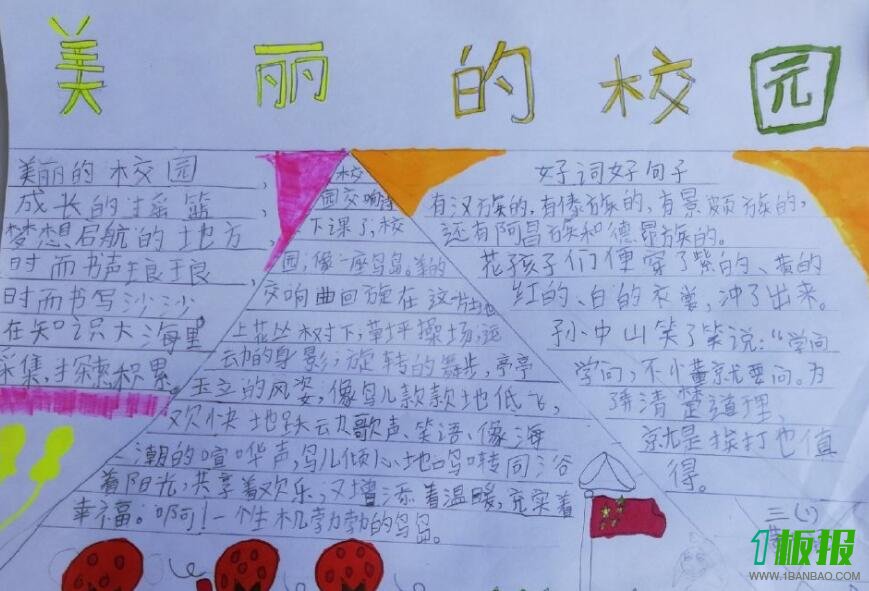 美丽的校园
美丽的校园,
成长的摇篮,
梦想启航的地方,
时而书声琅琅
时而书写沙沙
在知识大海里,
采集,探索积累。
校
园交响
下课了,校
园,像一座鸟岛。美的
交响曲回旋在这片土地
上花丛树下,草坪操场,运
动的身影,旋转的舞步,亭亭
玉立的风姿,像鸟儿款款地低飞,
欢快地跃动歌声、笑语、像海
潮的喧哗声,鸟儿倾心地鸣啭同浴
着阳光,共享着欢乐,又增添着温暖,充实着
幸福。啊!一个生机勃勃的鸟岛。
好词好句子
有汉族的,有傣族的,有景颇族的,
还有阿昌族和德昂族的。
花孩子们便穿了紫的、黄的
红的、白的衣裳,冲了出来。
孙中山笑了笑说:“学问
学问,不懂就要问。为
弄清楚道理,
就是挨打也值
得。
三(1)
1板报
WWW.1BANBAO.COM